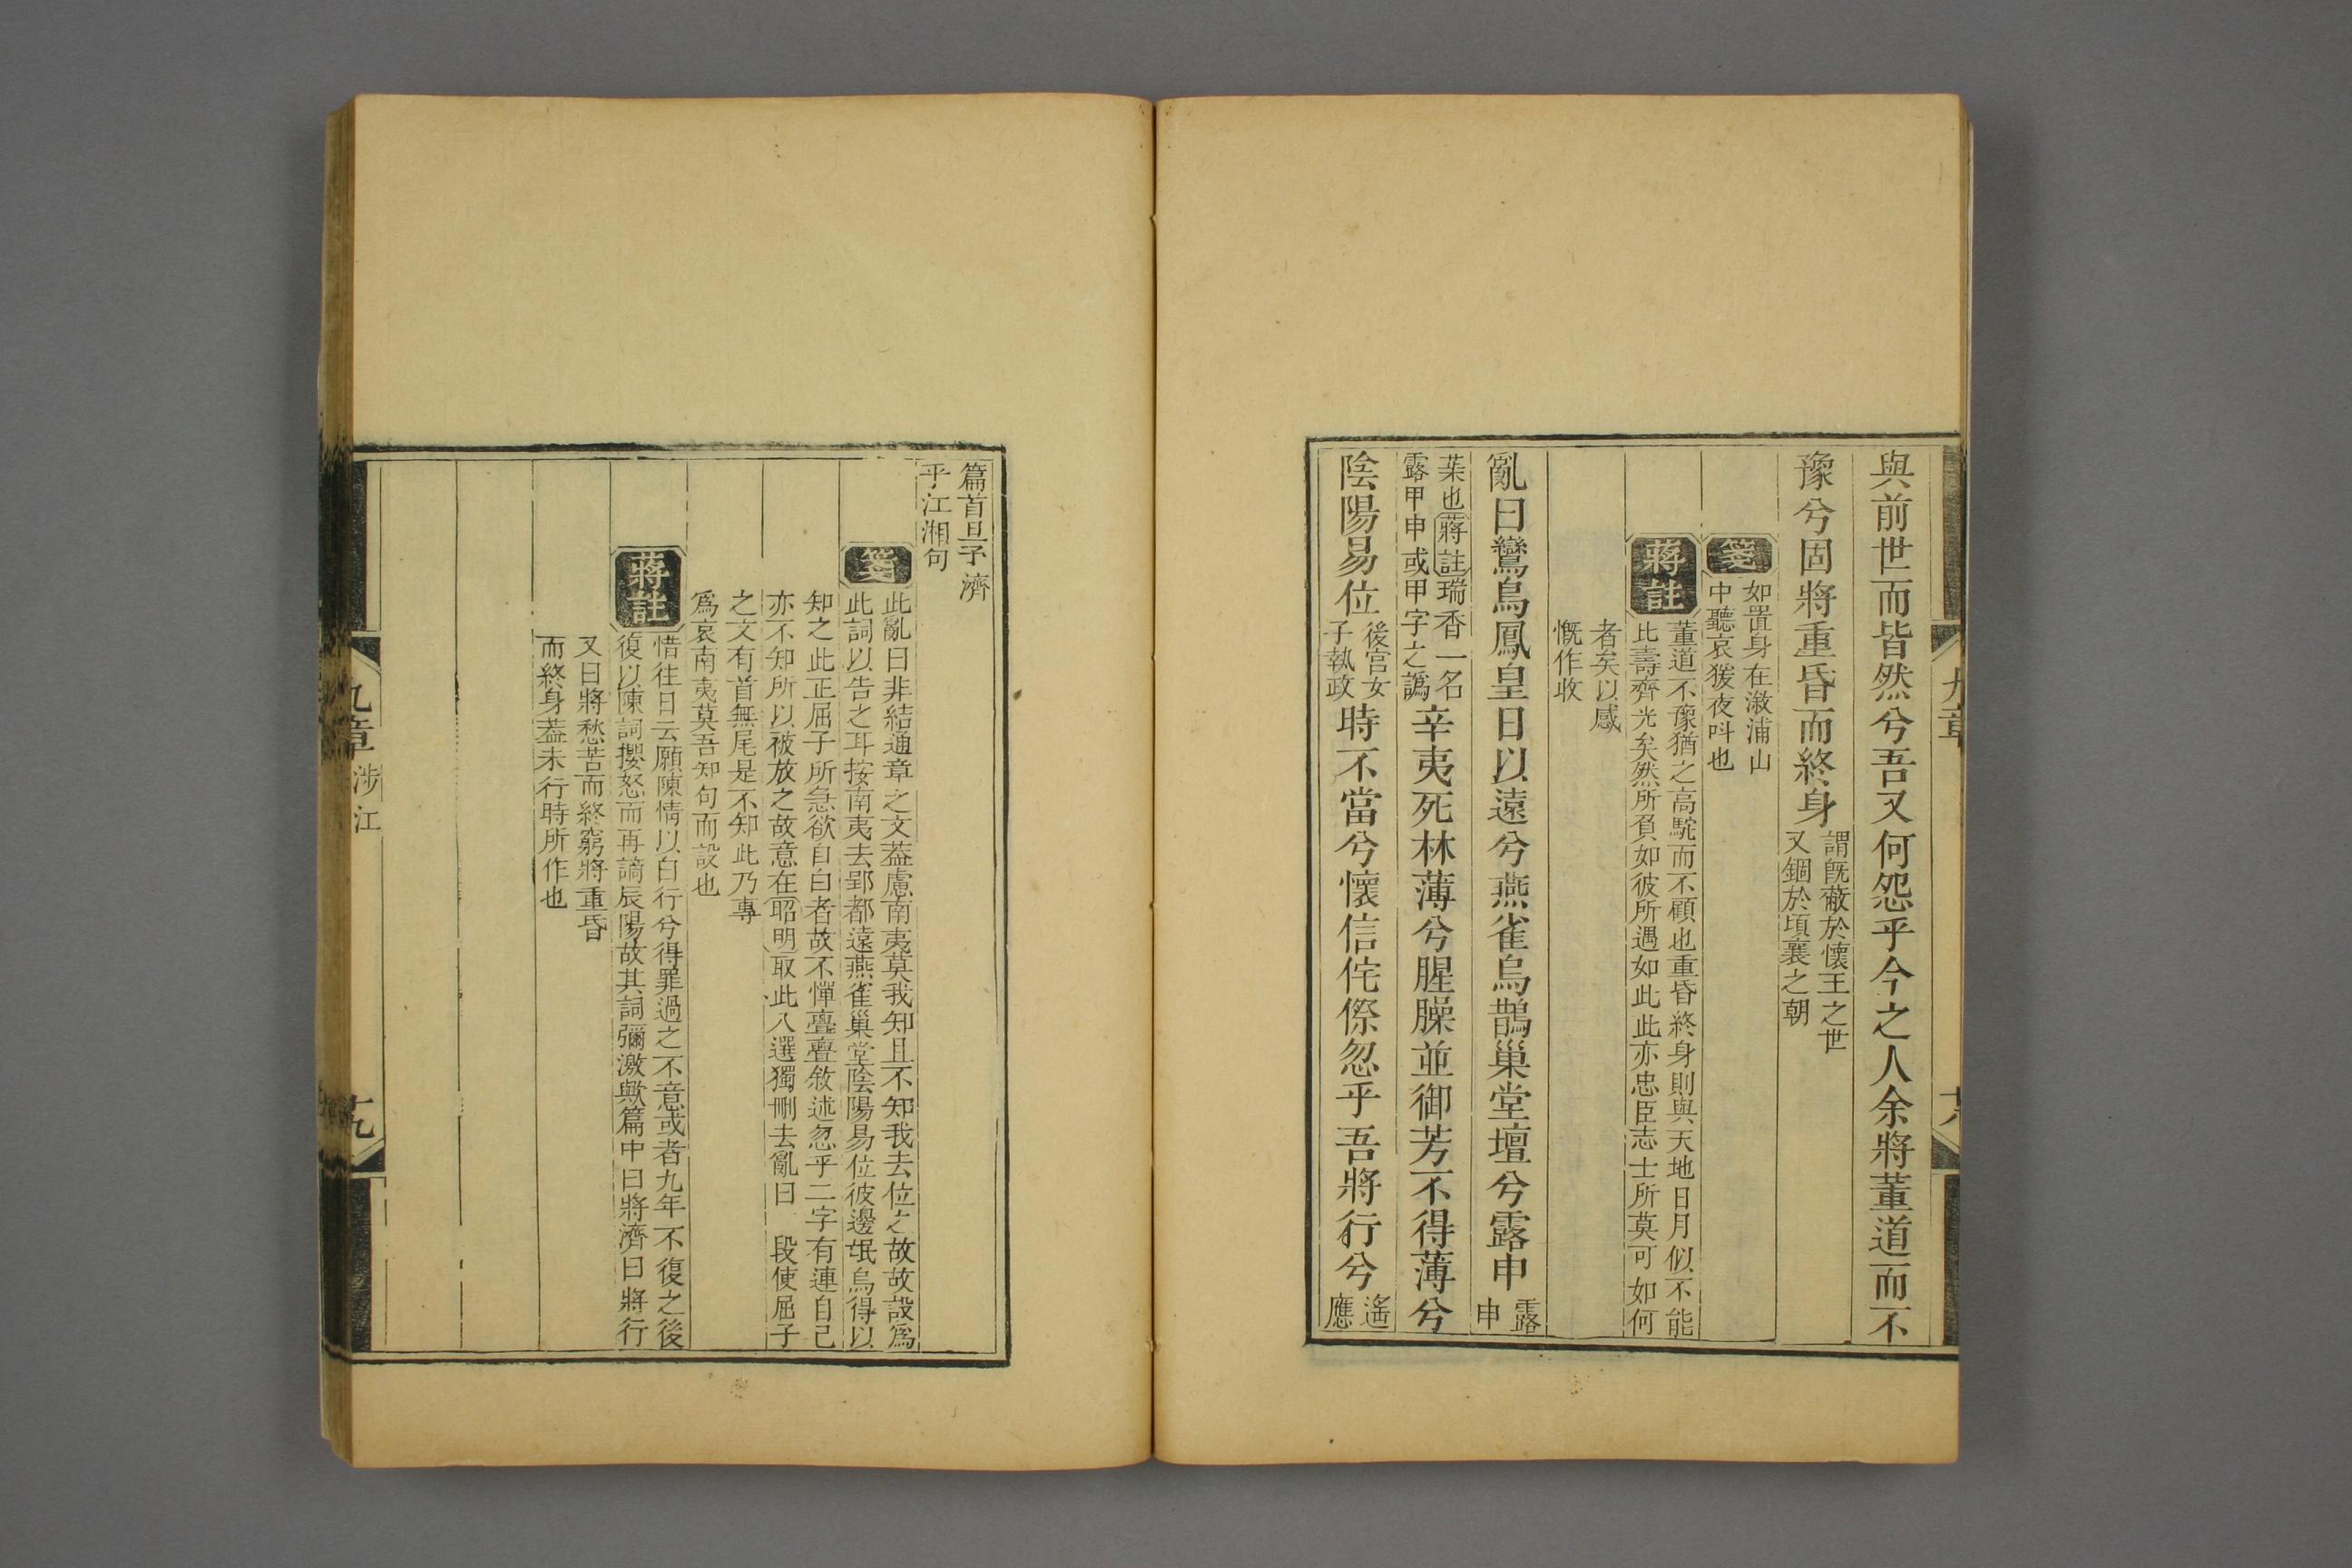 與前世而皆然兮吾又何怨乎今之人余將董道而不
豫兮固將重昏而終身
謂既蔽於懷王之世
又錮於頃襄之朝
箋
如置身在漵浦山
中聽哀猨夜呌也
蔣註
董道不豫猶之高駝而不顧也重昏終身則與天地日月似不能
比壽齊光矣然所負如彼所遇如此此亦忠臣志士所莫可如何
者矣以感
慨作收
亂曰鸞鳥鳳皇日以遠兮燕雀烏鵲巢堂壇兮露申
露
申
葇也蔣註瑞香一名
露甲申或甲字之譌
辛夷死林薄兮腥臊並御芳不得薄兮
陰陽易位
後宮女
子執政
時不當兮懷信侘傺忽乎吾將行兮
遙
應
九章
十八
篇首旦予濟
乎江湘句
箋
此亂曰非結通章之文葢慮南夷莫我知且不知我去位之故故設爲
此詞以告之耳按南夷去郢都遠燕雀巢堂陰陽易位彼邊氓烏得以
知之此正屈子所急欲自白者故不憚亹亹敘述忽乎二字有連自己
亦不知所以被放之故意在昭明取此入選獨刪去亂曰 段使屈子
之文有首無尾是不知此乃專
爲哀南夷莫吾知句而設也
蔣註
惜往日云願陳情以白行兮得罪過之不意或者九年不復之後
復以陳詞攖怒而再謫辰陽故其詞彌激歟篇中曰將濟曰將行
又曰將愁苦而終窮將重昏
而終身葢未行時所作也
九章
涉江
十九